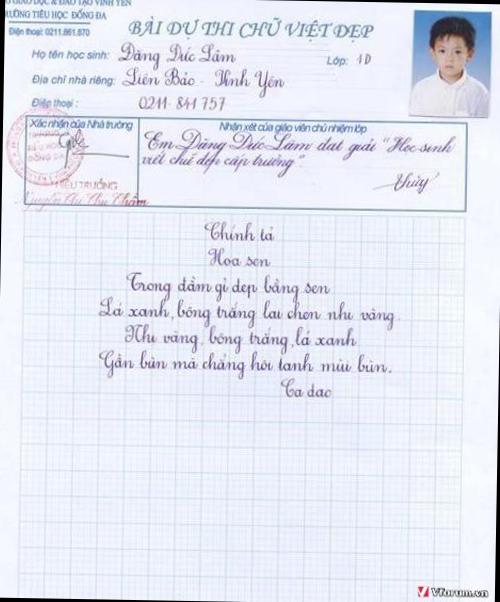 GIÁO DỤC & ĐÀO TẠO VĨNH YÊN
TRƯỜNG TIỂU HỌC ĐỐNG ĐA
Điện thoại: 0211.861.870
BÀI DỰ THI CHỮ VIỆT ĐẸP
Họ tên học sinh: Đặng Đức Lâm Lớp: 1D
Địa chỉ nhà riêng: Liên Bảo - Vĩnh Yên
Điện thoại: 0211. 841 757
Xác nhận của Nhà trường
HIỆU TRƯỞNG
Nhận xét của giáo viên chủ nhiệm lớp
Em Đặng Đức Lâm đạt giải "Học sinh
viết chữ đẹp cấp trường".
Thủy
Chính tả
Hoa sen
Trong đầm gì đẹp bằng sen
Lá xanh, bông trắng lại chen nhụ vàng.
Nhụ vàng, bông trắng, lá xanh
Gần bùn mà chẳng hôi tanh mùi bùn.
Ca dao
Vforum.vn